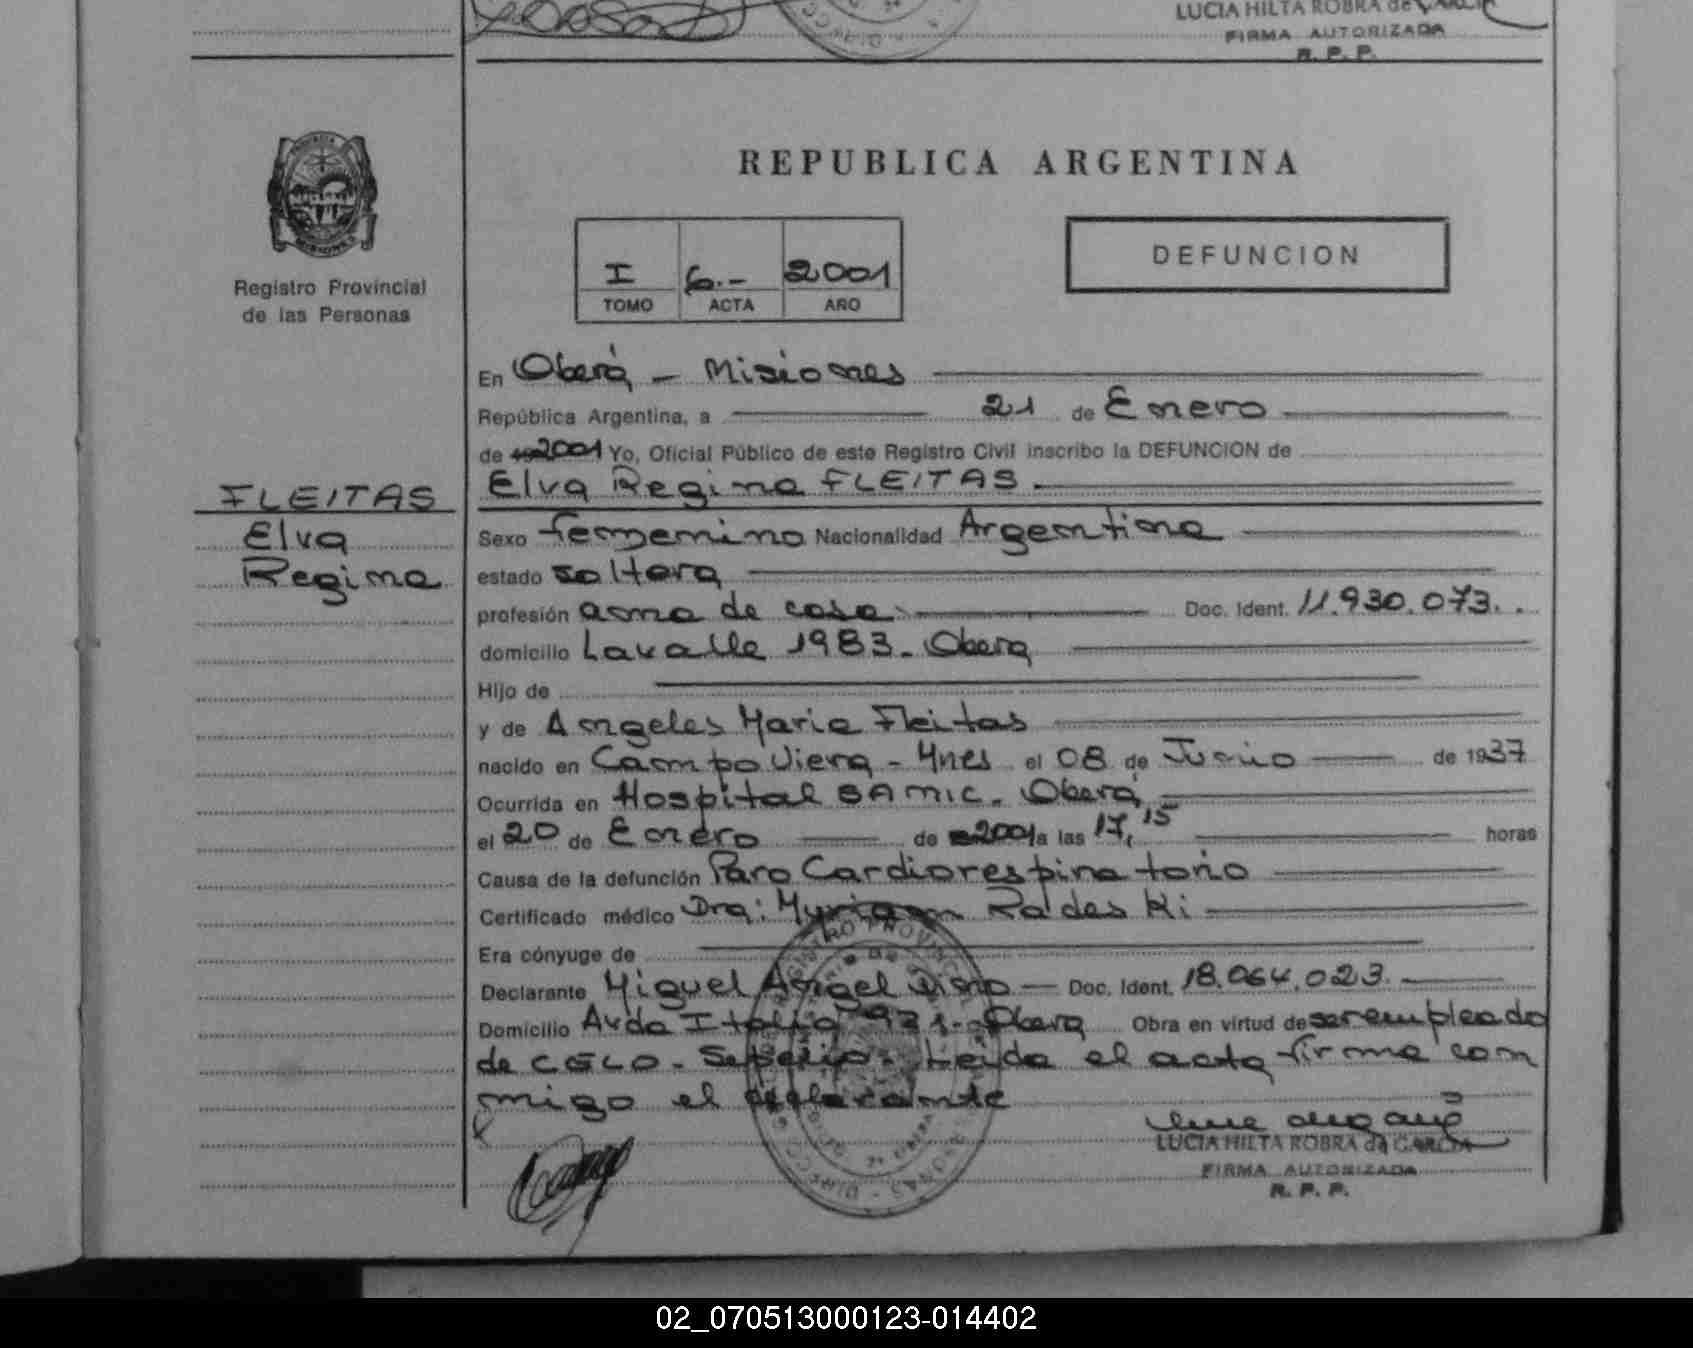 LUCIA HILTA ROBRA de GARCIA
FIRMA AUTORIZADA
R. P. P.
Registro Provincial
de las Personas
FLEITAS
Elva
Regina
REPUBLICA ARGENTINA
I 6.- 2001
TOMO ACTA AÑO
DEFUNCION
En Oberá - Misiones
República Argentina, a 21 de Enero
de 2001 Yo, Oficial Público de este Registro Civil inscribo la DEFUNCION de
Elva Regina FLEITAS.
Sexo femenino Nacionalidad Argentina
estado soltera
profesión ama de casa Doc. Ident. 11.930.073.
domicilio Lavalle 1983. Oberá
Hijo de
y de Angeles Maria Fleitas
nacido en Campo Viera - Mnes el 08 de Junio de 1937
Ocurrida en Hospital SAMIC. Oberá
el 20 de Enero de 2001 a las 17,15 horas
Causa de la defunción Paro Cardiorespiratorio
Certificado médico Dra: Myriam Raldes Ki
Era cónyuge de
Declarante Miguel Angel Doc. Ident. 18.064.023.
Domicilio Avda Italia 921. Oberá Obra en virtud de ser empleado
de CELO. Sepelio. Leida el acta firma con
migo el declarante
LUCIA HILTA ROBRA de GARCIA
FIRMA AUTORIZADA
R. P. P.
02_070513000123-014402